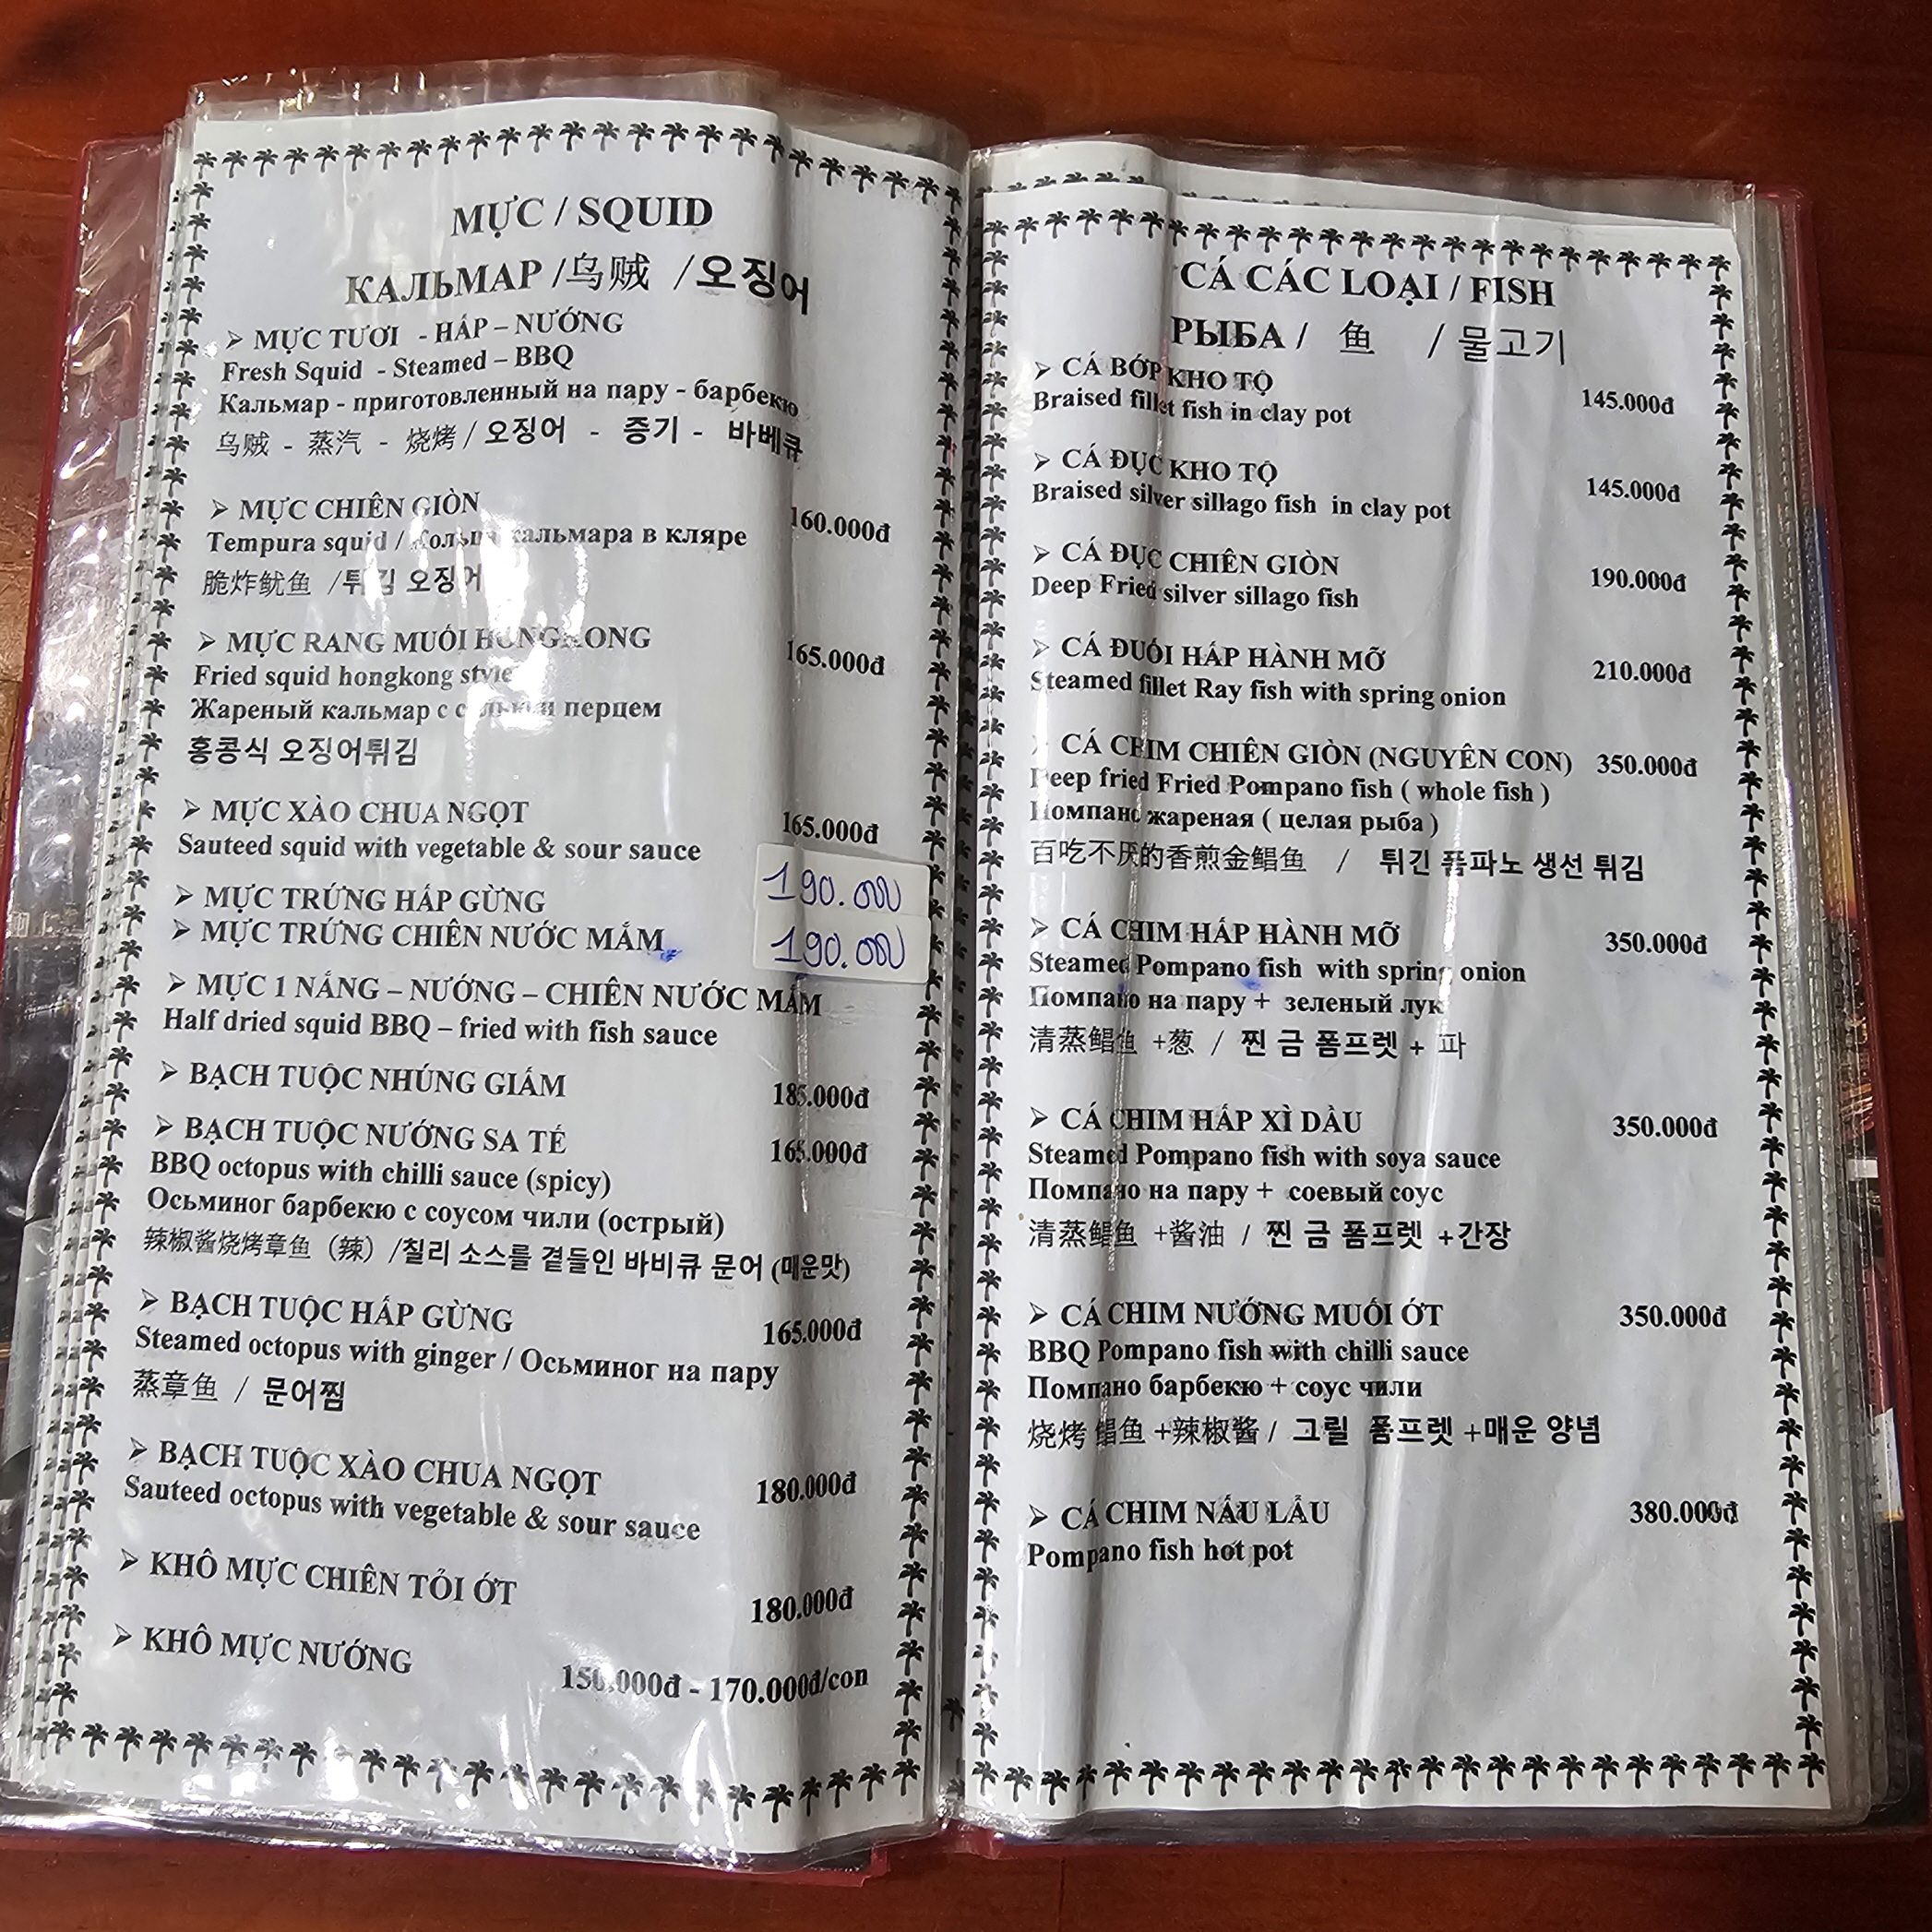 MỰC / SQUID
КАЛЬМАР /乌贼 /오징어
➢ MỰC TƯƠI - HẤP – NƯỚNG
Fresh Squid - Steamed – BBQ
Кальмар - приготовленный на пару - барбекю
乌贼 - 蒸汽 - 烧烤 / 오징어 - 증기 - 바베큐
➢ MỰC CHIÊN GIÒN 160.000đ
Tempura squid / кальмара в кляре
脆炸鱿鱼 /튀김 오징어
➢ MỰC RANG MUỐI HONGKONG 165.000đ
Fried squid hongkong style
Жареный кальмар с перцем
홍콩식 오징어튀김
➢ MỰC XÀO CHUA NGỌT 165.000đ
Sauteed squid with vegetable & sour sauce
➢ MỰC TRỨNG HẤP GỪNG 190.000
➢ MỰC TRỨNG CHIÊN NƯỚC MẮM 190.000
➢ MỰC 1 NẮNG – NƯỚNG – CHIÊN NƯỚC MẮM
Half dried squid BBQ – fried with fish sauce
➢ BẠCH TUỘC NHÚNG GIẤM 185.000đ
➢ BẠCH TUỘC NƯỚNG SA TẾ 165.000đ
BBQ octopus with chilli sauce (spicy)
Осьминог барбекю с соусом чили (острый)
辣椒酱烧烤章鱼（辣）/칠리 소스를 곁들인 바비큐 문어 (매운맛)
➢ BẠCH TUỘC HẤP GỪNG 165.000đ
Steamed octopus with ginger / Осьминог на пару
蒸章鱼 / 문어찜
➢ BẠCH TUỘC XÀO CHUA NGỌT 180.000đ
Sauteed octopus with vegetable & sour sauce
➢ KHÔ MỰC CHIÊN TỎI ỚT 180.000đ
➢ KHÔ MỰC NƯỚNG 150.000đ - 170.000đ/con
CÁ CÁC LOẠI / FISH
РЫБА / 鱼 / 물고기
➢ CÁ BỚP KHO TỘ 145.000đ
Braised fillet fish in clay pot
➢ CÁ ĐỤC KHO TỘ 145.000đ
Braised silver sillago fish in clay pot
➢ CÁ ĐỤC CHIÊN GIÒN 190.000đ
Deep Fried silver sillago fish
➢ CÁ ĐUỐI HẤP HÀNH MỠ 210.000đ
Steamed fillet Ray fish with spring onion
➢ CÁ CHIM CHIÊN GIÒN (NGUYÊN CON) 350.000đ
Deep fried Fried Pompano fish ( whole fish )
Помпано жареная ( целая рыба )
百吃不厌的香煎金鲳鱼 / 튀긴 폼파노 생선 튀김
➢ CÁ CHIM HẤP HÀNH MỠ 350.000đ
Steamed Pompano fish with spring onion
Помпано на пару + зеленый лук
清蒸鲳鱼 +葱 / 찐 금 폼프렛 + 파
➢ CÁ CHIM HẤP XÌ DẦU 350.000đ
Steamed Pompano fish with soya sauce
Помпано на пару + соевый соус
清蒸鲳鱼 +酱油 / 찐 금 폼프렛 +간장
➢ CÁ CHIM NƯỚNG MUỐI ỚT 350.000đ
BBQ Pompano fish with chilli sauce
Помпано барбекю + соус чили
烧烤 鲳鱼 +辣椒酱 / 그릴 폼프렛 +매운 양념
➢ CÁ CHIM NẤU LẨU 380.000đ
Pompano fish hot pot